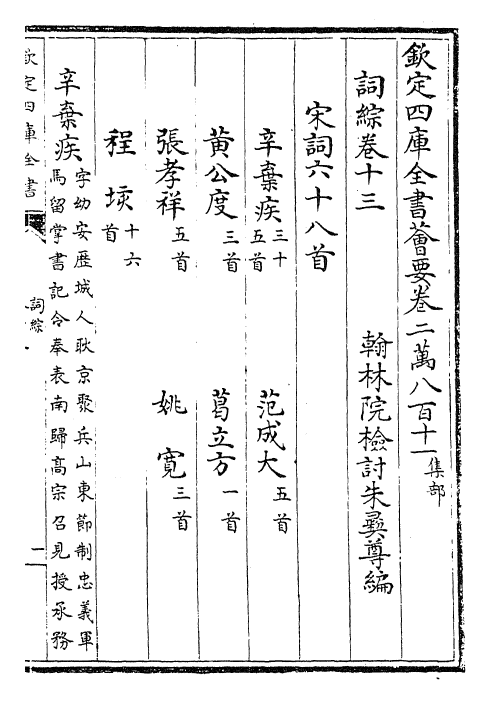 欽定四庫全書薈要卷二萬八百十一集部
詞綜卷十三
翰林院檢討朱彞尊編
宋詞六十八首
辛棄疾三十五首
范成大五首
黄公度三首
葛立方一首
張孝祥五首
姚寛三首
程垓十六首
辛棄疾字幼安歴城人耿京聚兵山東節制忠義軍
馬留掌書記令奉表南歸髙宗召見授承務
欽定四庫全書
詞綜
一